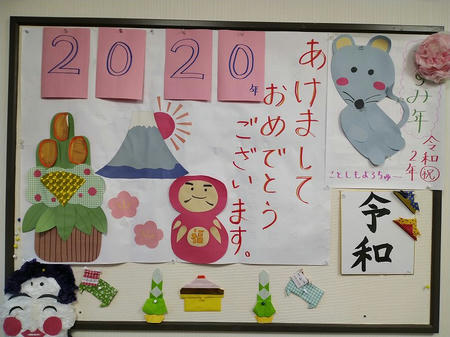 2020年
あけまして
おめでとう
ございます。
ねずみ年
令和
2年
祝
ことしもよろちゅ〜
福
令和